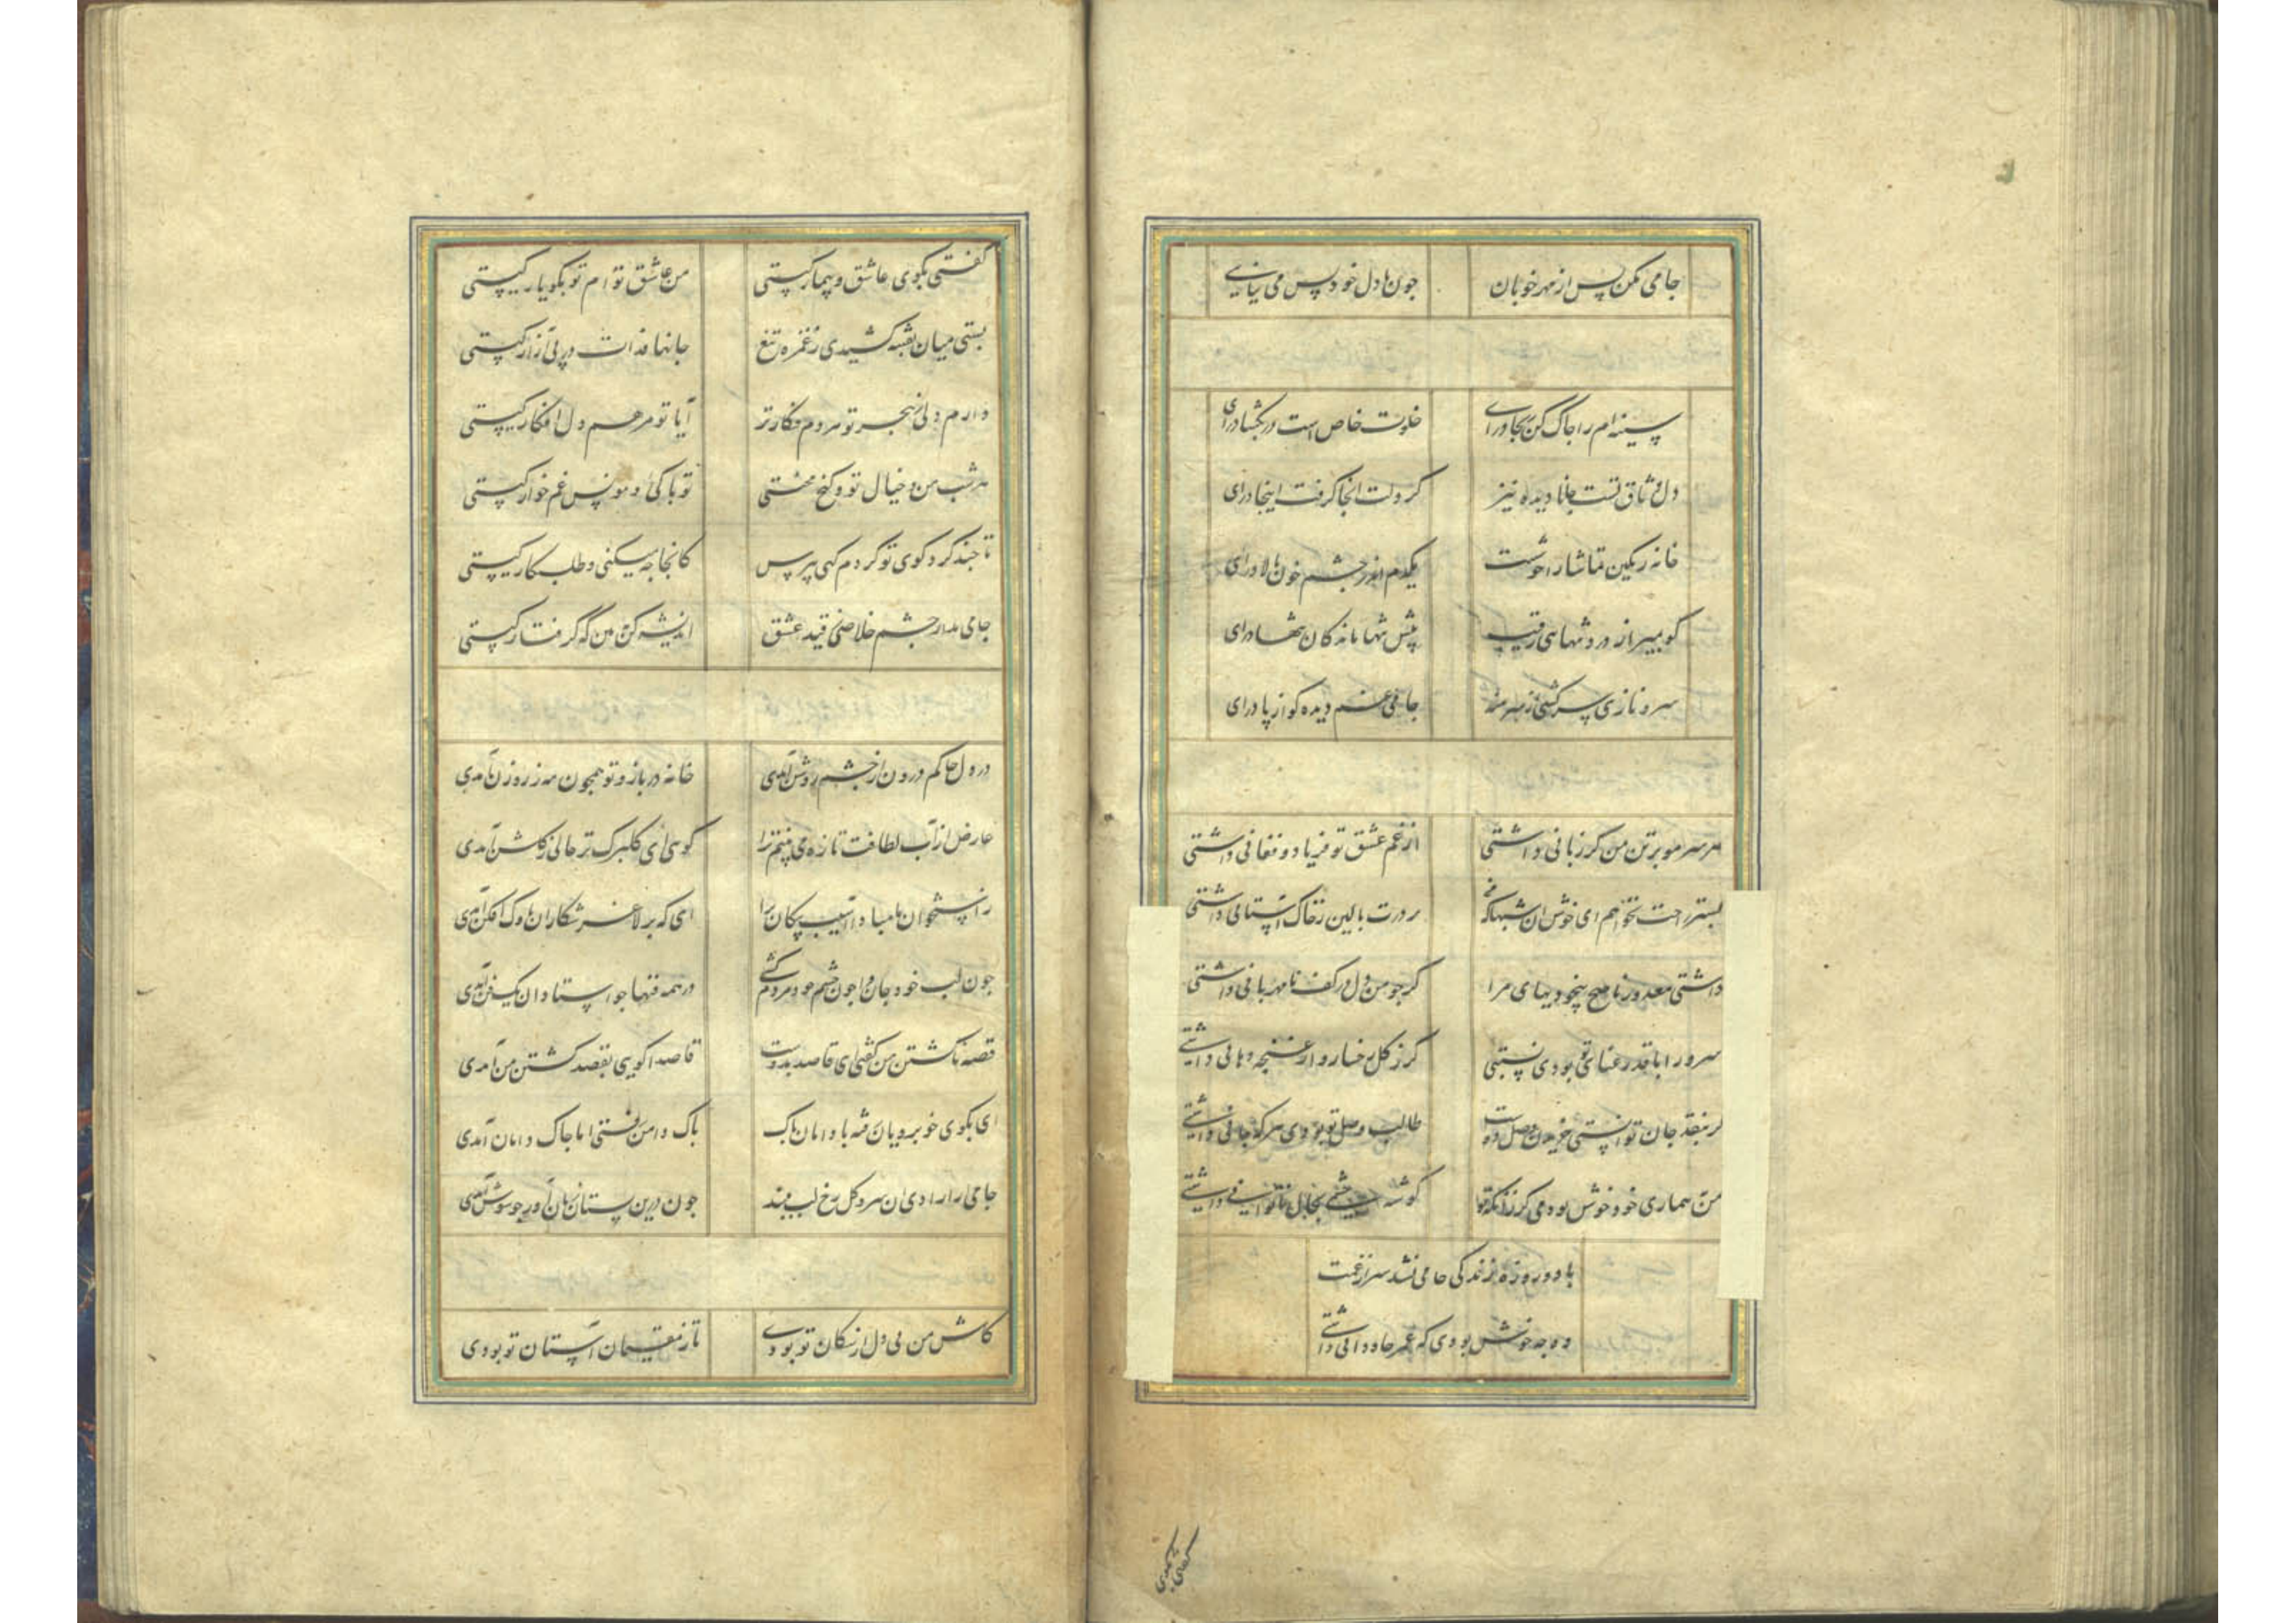 جامی مکن پس از مهر خوبان چون با دل خود پس می نیایی
سینه ام را چاک کن بجا درآی خلوت خاص است در بکشا درای
دل وثاق تست جانا دیده نیز گر دلت آنجا گرفت اینجا درای
خانه رنگین تماشا را خوشست یکدم اندر چشم خون پالا درای
گو بمیر از درد تنهایی رقیب پیش تنها ماندگان تنها درای
سرو نازی سرکشی از سر منه جامی غم دیده گو از پا درای
هر سر مو بر تن من گر زبانی داشتی از غم عشق تو فریاد و فغانی داشتی
بستر راحت نخواهم ای خوش آن شبها که بر درت بالین ز خاک آستانی داشتی
داشتی معذور ناصح بیخودیهای مرا گر چو من دل در کف نامهربانی داشتی
سرو را با قد رعنای تو بودی نسبتی گر ز گل رخسار و از غنچه دهانی داشتی
گر بنقد جان توانستی خریدن وصل دوست طالب وصل تو بودی هر که جانی داشتی
من بیماری خود خوش بودمی گر زانکه تو گوشه چشمی بحال ناتوانی داشتی
با دو روزه زندگی جامی نشد سیر از غمت
وه چه خوش بودی که عمر جاودانی داشتی
گفتی بکوی
گفتی بکوی عاشق و بیمار کیستی من عاشق تو ام تو بکو یار کیستی
بستی میان بفتنه کشیدی ز غمزه تیغ جانها فدات در پی آزار کیستی
دارم دلی ز هجر تو هر دم فکارتر آیا تو مرهم دل افکار کیستی
هر شب من و خیال تو و کنج محنتی تو با کئی و مونس غم خوار کیستی
تا چند گرد کوی تو گردم گهی بپرس کاینجا چه میکنی و طلب کار کیستی
جامی مدار چشم خلاصی ز قید عشق اندیشه کن ببین که گرفتار کیستی
در دل چاکم درون از چشم روشن آمدی خانه در باز و تو همچون مه ز روزن آمدی
عارض از آب لطافت تازه می بینم ترا گویی ای گلبرگ تر حالی ز گلشن آمدی
ز استخوان ما مبادا آسیب پیکان ترا ای که بر لاغر شکاران ناوک افکن آمدی
چون لب خود جان و چون چشم خود مردم کشی در همه فنها چو استادان یک فن آمدی
قصه ناکشتن من گفتی ای قاصد بدوست قاصدا گویی بقصد کشتن من آمدی
ای بکوی خوبرویان رفته با دامان پاک پاک دامن رفتی اما چاک دامان آمدی
جامی از آزادی آن سرو گل رخ لب مبند چون درین بستان زبان آور چو سوسن آمدی
کاش من بی دل از سگان تو بودی تا ز مقیمان آستان تو بودی